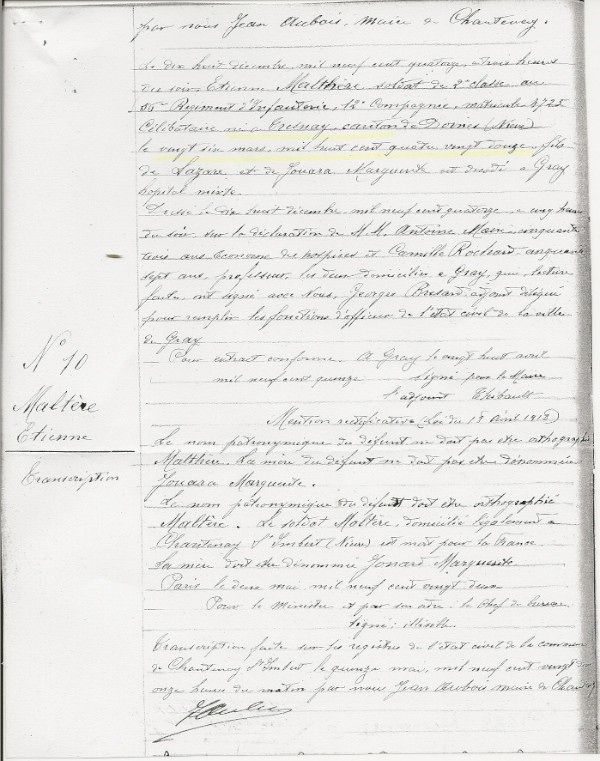 par nous Jean Aubois, maire de Chantenay.
Le dix huit décembre mil neuf cent quatorze à trois heures
du soir Etienne Malthère soldat de 2e classe au
Régiment d'Infanterie, 12e Compagnie, matricule 4725
Célibataire né à Tresnay, canton de Dornes (Nièvre)
le vingt six mars, mil huit cent quatre vingt douze, fils
de Lazare et de Jouara Marguerite est décédé à Gray
hôpital mixte.
Dressé le dix huit décembre mil neuf cent quatorze à cinq heures
du soir sur la déclaration de M.M. Antoine cinquante
trois ans économe des hospices et Camille Rochard, cinquante
sept ans, professeur, les deux domiciliés à Gray, qui, lecture
faite, ont signé avec Nous, Georges adjoint délégué
pour remplir les fonctions d'officier de l'état civil de la ville
de Gray
Pour extrait conforme. A Gray le vingt huit août
mil neuf cent quinze Signé pour le Maire
l'adjoint Thibault
Mention rectificative (Loi du 18 Avril 1918)
Le nom patronymique du défunt ne doit pas etre orthographié
Malthère. La mère du défunt ne doit pas etre dénommée
Jouara Marguerite.
Le nom patronymique du défunt doit etre orthographié
Maltère. Le soldat Maltère, domicilié légalement à
Chantenay St Imbert (Nièvre) est mort pour la France.
La mère doit etre dénommée Jouard Marguerite
Paris le deux mai mil neuf cent vingt deux
Pour le Ministre et par son ordre : le Chef de bureau
Signé :
Transcription faite sur les registres de l'état civil de la commune
de Chantenay St Imbert le quinze mai, mil neuf cent vingt deux
onze heures du matin par nous Jean Aubois maire de Chantenay
N° 10
Maltère
Etienne
Transcription